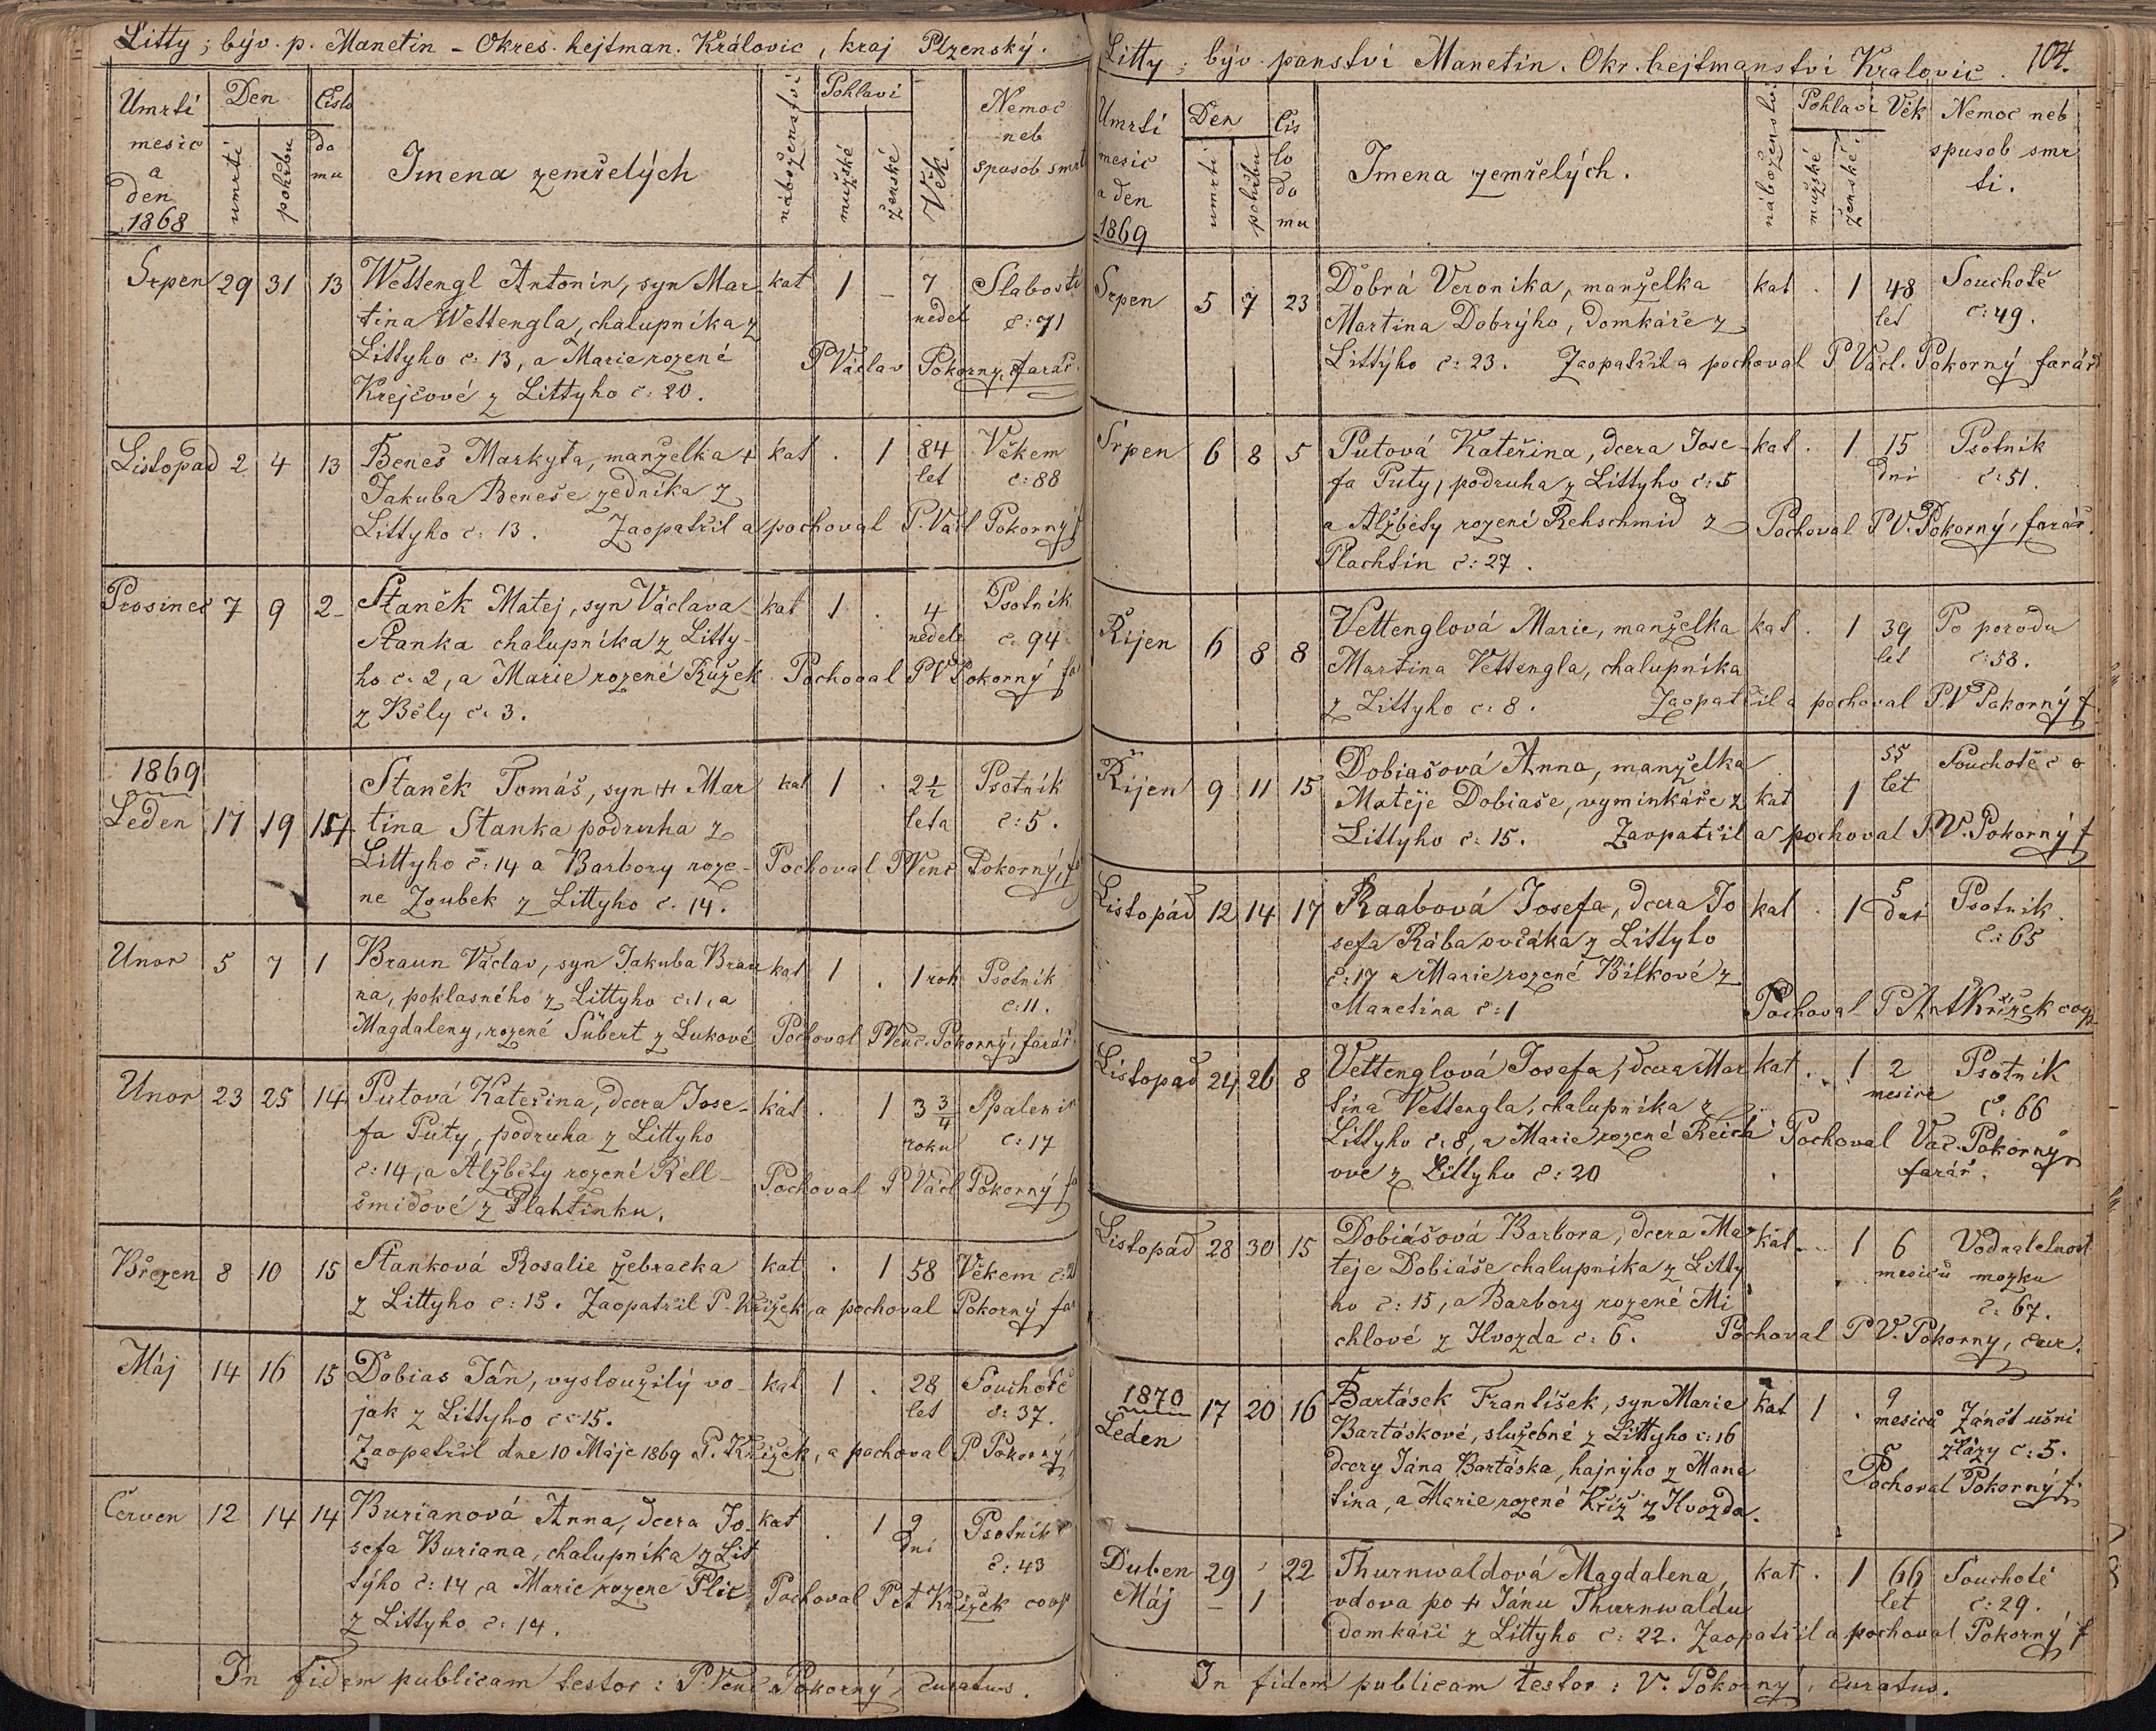 Litty; býv. p. Manetin - Okres. hejtman. Královic, kraj Plzenský.
Umrtí mesic a den 1868
Den
umrtí
pohřbu
Čislo domu
Imena zemřelých
náboženství
Pohlaví
mužské
ženské
Věk.
Nemoc neb spusob smrt
Srpen 29 31 13 Wettengl Antonín, syn Mar- kat 1 - 7 Slabostí
tina Wettengla, chalupníka z nedel č: 71
Littyho č: 13, a Marie rozené P Václav Pokorny, farář.
Krejčové z Littyho č: 20.
Listopad 2 4 13 Beneš Markyta, manželka + kat . 1 84 Věkem
Jakuba Beneše zedníka z let č: 88
Littyho č: 13. Zaopatřil a pochoval P. Václ Pokorný f
Prosinec 7 9 2 Staněk Matej, syn Václava kat 1 . 4 Psotník
Stanka chalupníka z Litty- nedele č. 94
ho č. 2, a Marie rozené Růžek Pochoval P V Pokorný fa
z Běly č. 3.
1869
Leden 17 19 14 Staněk Tomáš, syn + Mar kat 1 . 2½ Psotník
tina Stanka podruha z leta č: 5.
Littyho č: 14 a Barbory roze- Pochoval P Venc Pokorný, f
ne Zoubek z Littyho č. 14.
Unor 5 7 1 Braun Václav, syn Jakuba Brau kat 1 . 1 rok Psotník
na, poklasného z Littyho č: 1, a č: 11.
Magdaleny, rozené Šubert z Lukové Pochoval P Venc. Pokorný, farář
Unor 23 25 14 Putová Kateřina, dcera Jose- kat . 1 3¾ Spalenin
fa Puty, podruha z Littyho roku č: 17
č: 14, a Alžběty rozené Rell-
šmidové z Plahtinku. Pochoval P Václ Pokorný f
Březen 8 10 15 Stanková Rosalie žebračka kat . 1 58 Věkem
z Littyho č: 15. Zaopatřil P. Křižek, a pochoval Pokorný far
Máj 14 16 15 Dobias Ján, vysloužilý vo- kat 1 . 28 Souchotě
jak z Littyho č: 15. let č: 37.
Zaopatřil dne 10 Máje 1869 P. Křížek, a pochoval P. Pokorný
Červen 12 14 14 Burianová Anna, dcera Jo- kat . 1 9 Psotník
sefa Buriana, chalupníka z Lit dní č: 43
týho č: 14, a Marie rozene Plic, Pochoval P Křížek coop
z Littyho č: 14.
In fidem publicam testor: P. Venc Pokorný, curatus.
Litty; býv. panství Manetin. Okr. hejtmanství Kralovic. 104.
Umrtí mesic a den 1869
Den
umrti
pohřbu
Čislo domu
Imena zemřelých.
náboženství
Pohlaví
mužské
ženské.
Věk
Nemoc neb spusob smrti.
Srpen 5 7 23 Dobrá Veronika, manželka kat . 1 48 Souchotě
Martina Dobrýho, domkáře z let č: 49.
Littýho č: 23. Zaopatřil a pochoval P Václ. Pokorný farář
Srpen 6 8 5 Putová Kateřina, dcera Jose- kat . 1 15 Psotník
fa Puty, podruha z Littyho č: 5 dní č: 51.
a Alžběty rození Rehschmid z Pochoval P V. Pokorný, farář.
Plachtin č: 27.
Říjen 6 8 8 Vettenglová Marie, manželka kat . 1 39 Po porodu
Martina Vettengla, chalupníka let č: 58.
z Littyho č: 8. Zaopatřil a pochoval P. V Pokorný f.
Říjen 9 11 15 Dobiašová Anna, manželka 55 Souchotě
Matěje Dobiaše, vyminkáře z kat 1 let
Littyho č: 15. Zaopatřil a pochoval P V. Pokorný f
Listopád 12 14 17 Raabová Josefa, dcera Jo kat . 1 5 Psotník.
sefa Rába ovčáka z Littyho dní č: 65
č: 17 a Marie rozené Bilkové z
Manetina č: 1 Pochoval P Ant Křížek coop
Listopad 24 26 8 Vettenglová Josefa, dcera Mar kat . 1 2 Psotník
tina Vettengla, chalupníka z mesice č: 66
Littyho č: 8, a Marie rozené Reich Pochoval Vac. Pokorný
ove z Littyho č: 20 farář.
Listopád 28 30 15 Dobiášová Barbora, dcera Ma kat - 1 6 Vodnatelnost
teje Dobiáše chalupníka z Litty mesiců mozku
ho č: 15, a Barbory rozené Mi č: 67.
chlové z Hvozda č: 6. Pochoval P V. Pokorny, cur.
1870
Leden 17 20 16 Bartásek František, syn Marie kat 1 . 9
Bartáskové, služebné z Littyho č: 16 mesiců Zánět ušni
dcery Jána Bartáska, hajnýho z Mane žlázy č: 5.
tina, a Marie rozené Kříž z Hvozda. Pochoval Pokorný f
Duben 29 22 Thurnwaldová Magdalena, kat . 1 66 Souchotě
Máj - 1 vdova po + Jánu Thurnwaldu let č: 29.
domkáři z Littyho č: 22. Zaopatřil a pochoval Pokorný f
In fidem publicam testor: V. Pokorný, curatus.